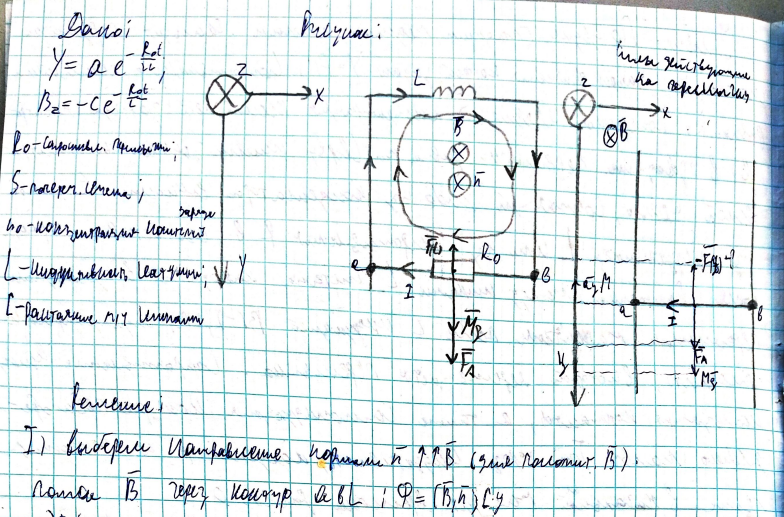 Дано:
Рисунок:
Y = a e^{-\frac{R_0 t}{2L}};
B_z = -c e^{-\frac{R_0 t}{L}}
R_0 - сопротивл. перемычки;
S - попереч. сечен.;
n_0 - концентрация носителей заряда
L - индуктивность катушки;
l - расстояние м/у шинами
Z
X
Y
L
B
n
R_0
a
в
I
F(t)
Mg
F_A
Силы действующие
на перемычку
Z
X
B
a_y M
F(t) - ?
a
I
в
F_A
Mg
Решение:
I) выберем направление нормали n ↑↑ B (для положит. B).
поток B через контур авL ; Ф = (B, n) l·y